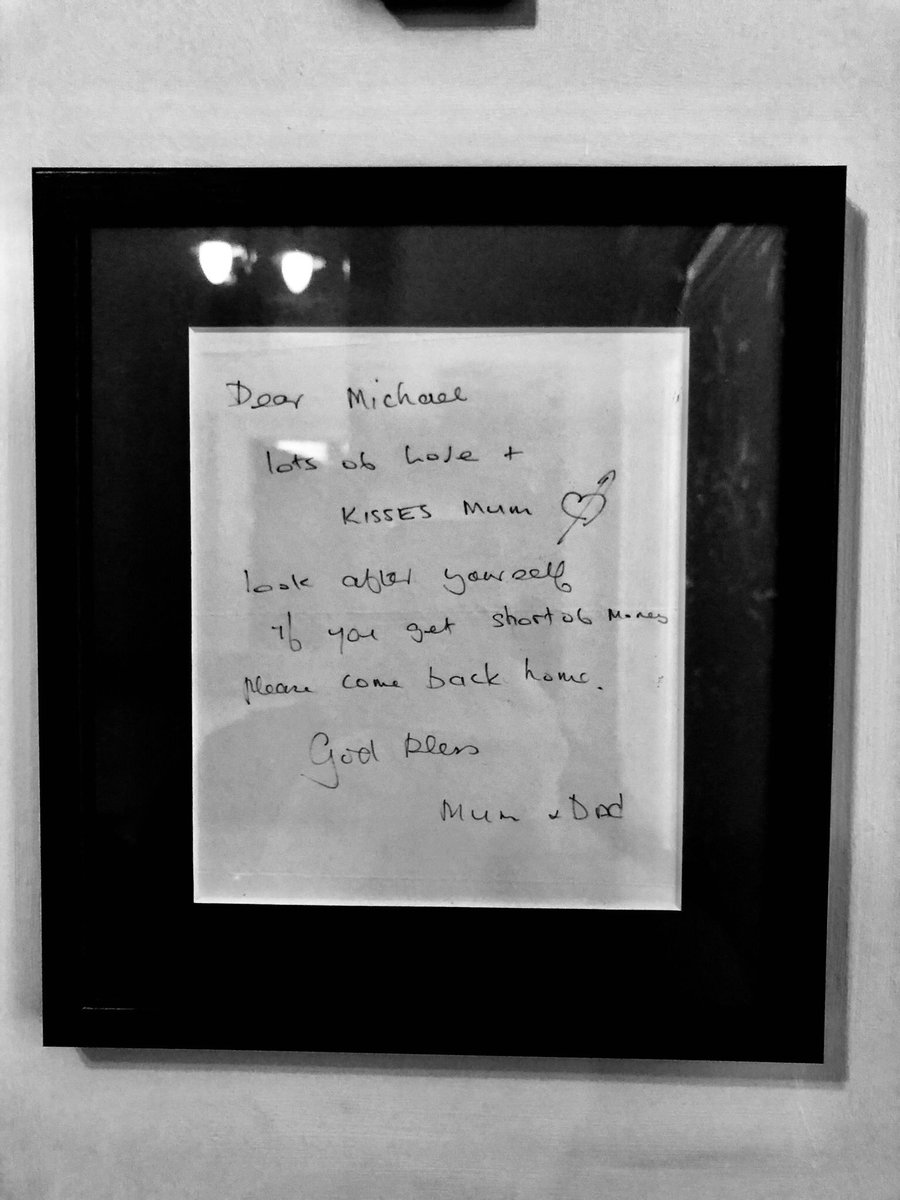 Dear Michael
lots of love +
KISSES Mum
look after yourself
if you get short of money
please come back home.
God bless
Mum + Dad